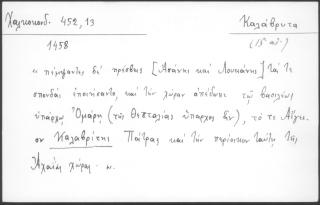 Χαλκοκονδ. 452,13
Καλάβρυτα
(15ος αἰ.)
1458
« πέμψαντες δὲ πρέσβεις [Ἀσάνης καὶ Λουκάνης] τάς τε
σπονδὰς ἐποιήσαντο, καὶ τὴν χώραν ἀπέδωκε τῷ βασιλέως
ὑπάρχῳ Ὀμάρῃ (τῆς Θετταλίας ὕπαρχος ἦν), τό τε Αἴγι-
ον Καλαβρύτης Πάτρας καὶ τὴν περίοικον ταύτῃ τῆς
Ἀχαΐας χώρας. ».